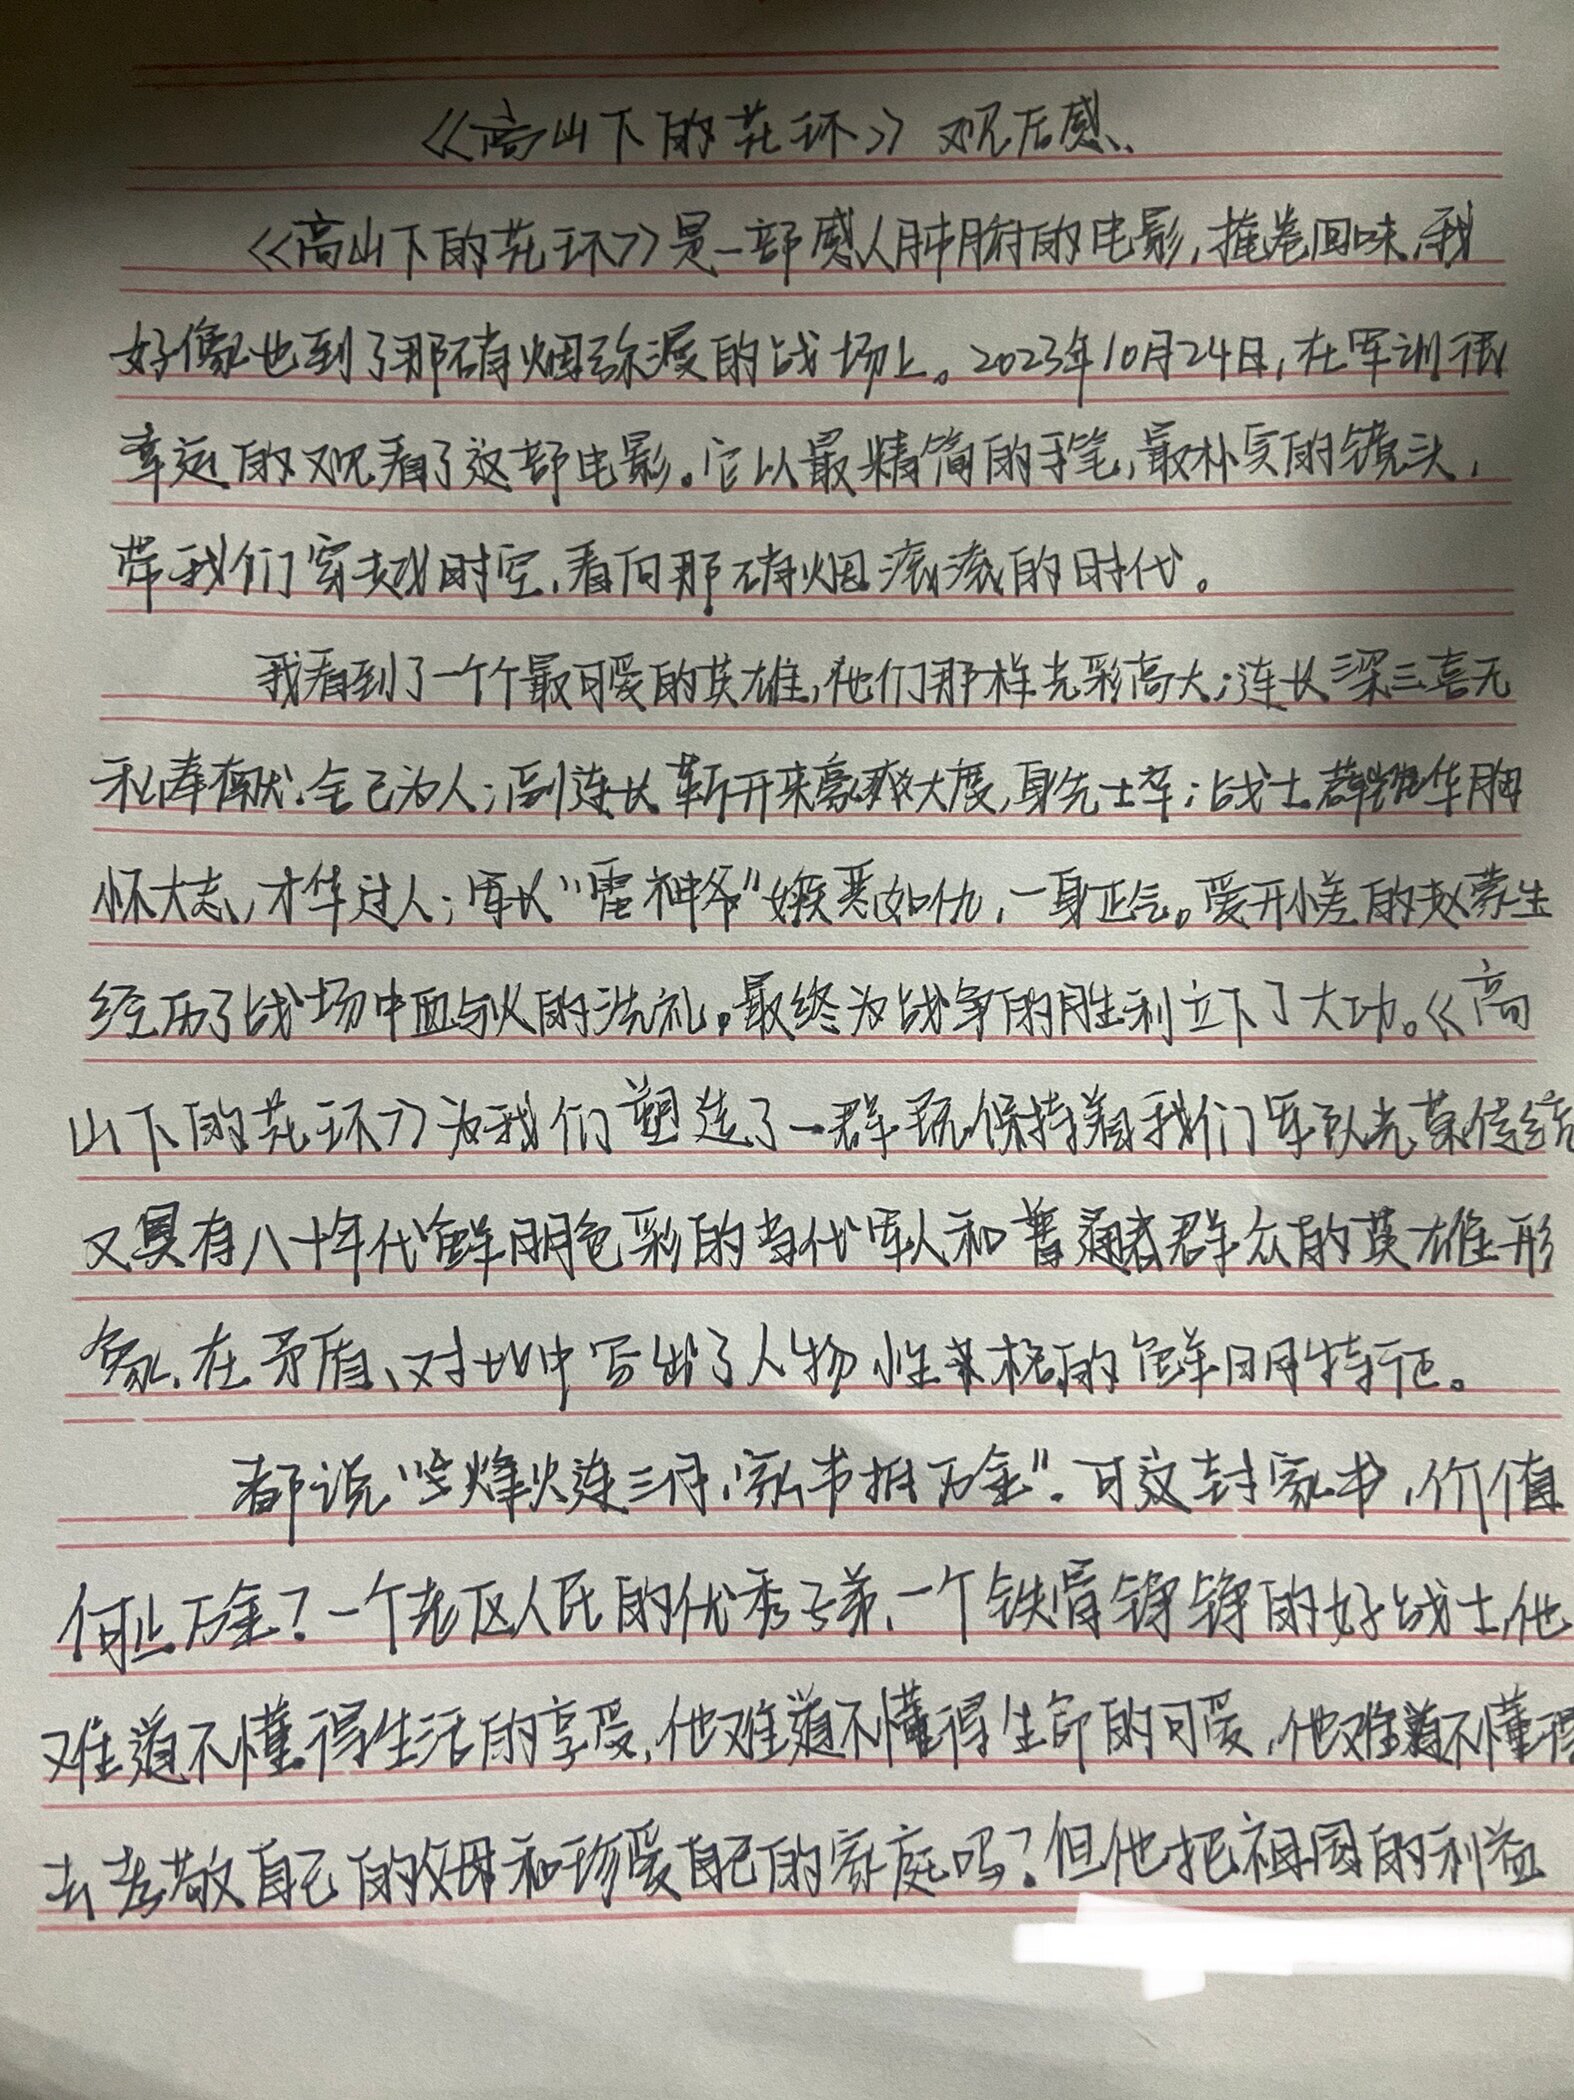 《高山下的花环》观后感
《高山下的花环》是一部感人肺腑的电影,掩卷回味,我
好像也到了那硝烟弥漫的战场上。2023年10月24日,在军训很
幸运的观看了这部电影。它以最精简的手笔,最朴实的镜头,
带我们穿越时空,看向那硝烟滚滚的时代。
我看到了一个个最可爱的英雄,他们那样光彩高大;连长梁三喜无
私奉献、舍己为人;副连长靳开来豪爽大度,身先士卒;战士薛凯华胸
怀大志,才华过人;军长“雷神爷”嫉恶如仇,一身正气。爱开小差的赵蒙生
经历了战场中血与火的洗礼,最终为战争的胜利立下了大功。《高
山下的花环》为我们塑造了一群既保持着我们军队光荣传统
又具有八十年代鲜明色彩的当代军人和普通群众的英雄形
象,在矛盾、对比中写出了人物性格的鲜明特征。
都说“烽火连三月,家书抵万金”.可这封家书,价值
何止万金?一个老区人民的优秀子弟,一个铁骨铮铮的好战士,他
难道不懂得生活的享受,他难道不懂得生命的可爱,他难道不懂得
去孝敬自己的父母和珍爱自己的家庭吗?但他把祖国的利益